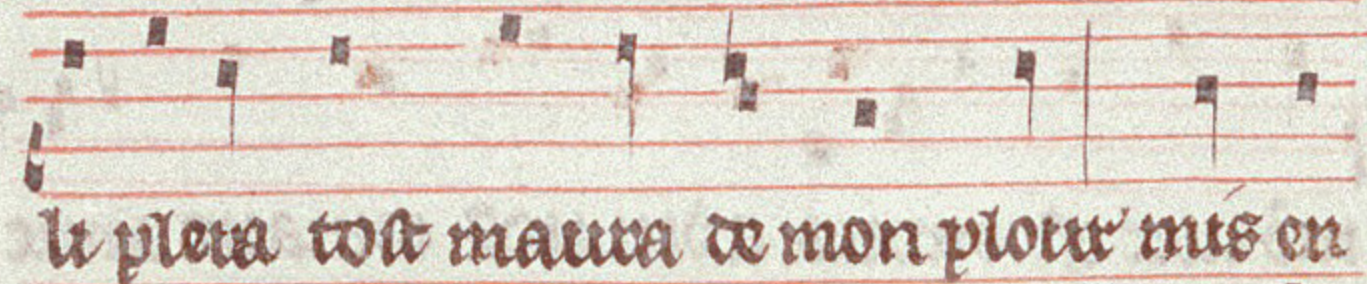 li plera tost maura de mon plour mis en